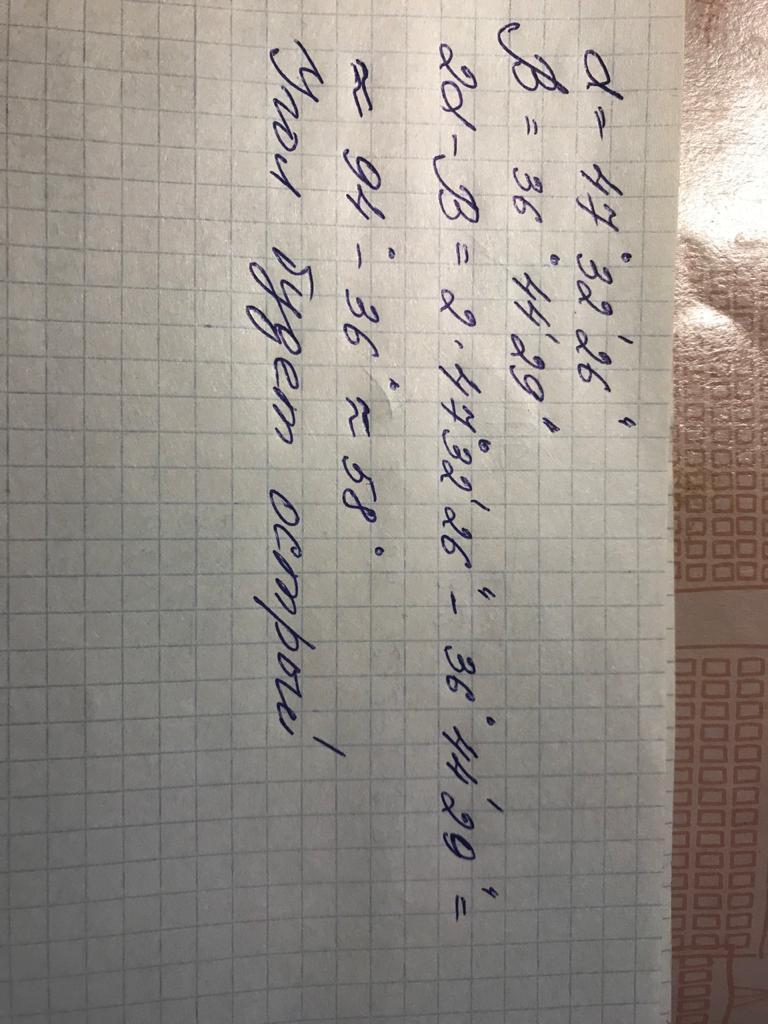 α = 47° 32' 26"
β = 36° 44' 29"
2α - β = 2 · 47° 32' 26" - 36° 44' 29" =
≈ 94° - 36° ≈ 58°
Угол будет острый!